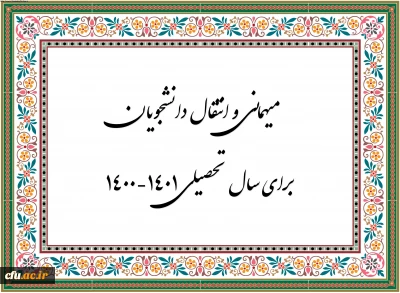 میهمانی و انتقال دانشجویان
برای سال تحصیلی ۱۴۰۱-۱۴۰۰
cfu.ac.ir